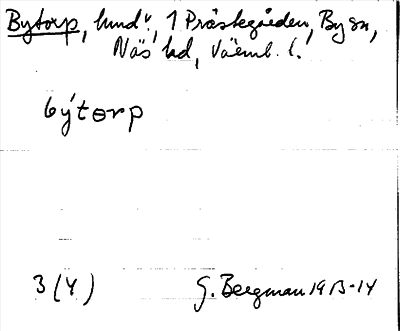 Bytorp, lund v., 1 Prästegården, By sn,
Näs hd, Värml. l.
býtɵrp
3 (4)
G. Bergman 1913-14